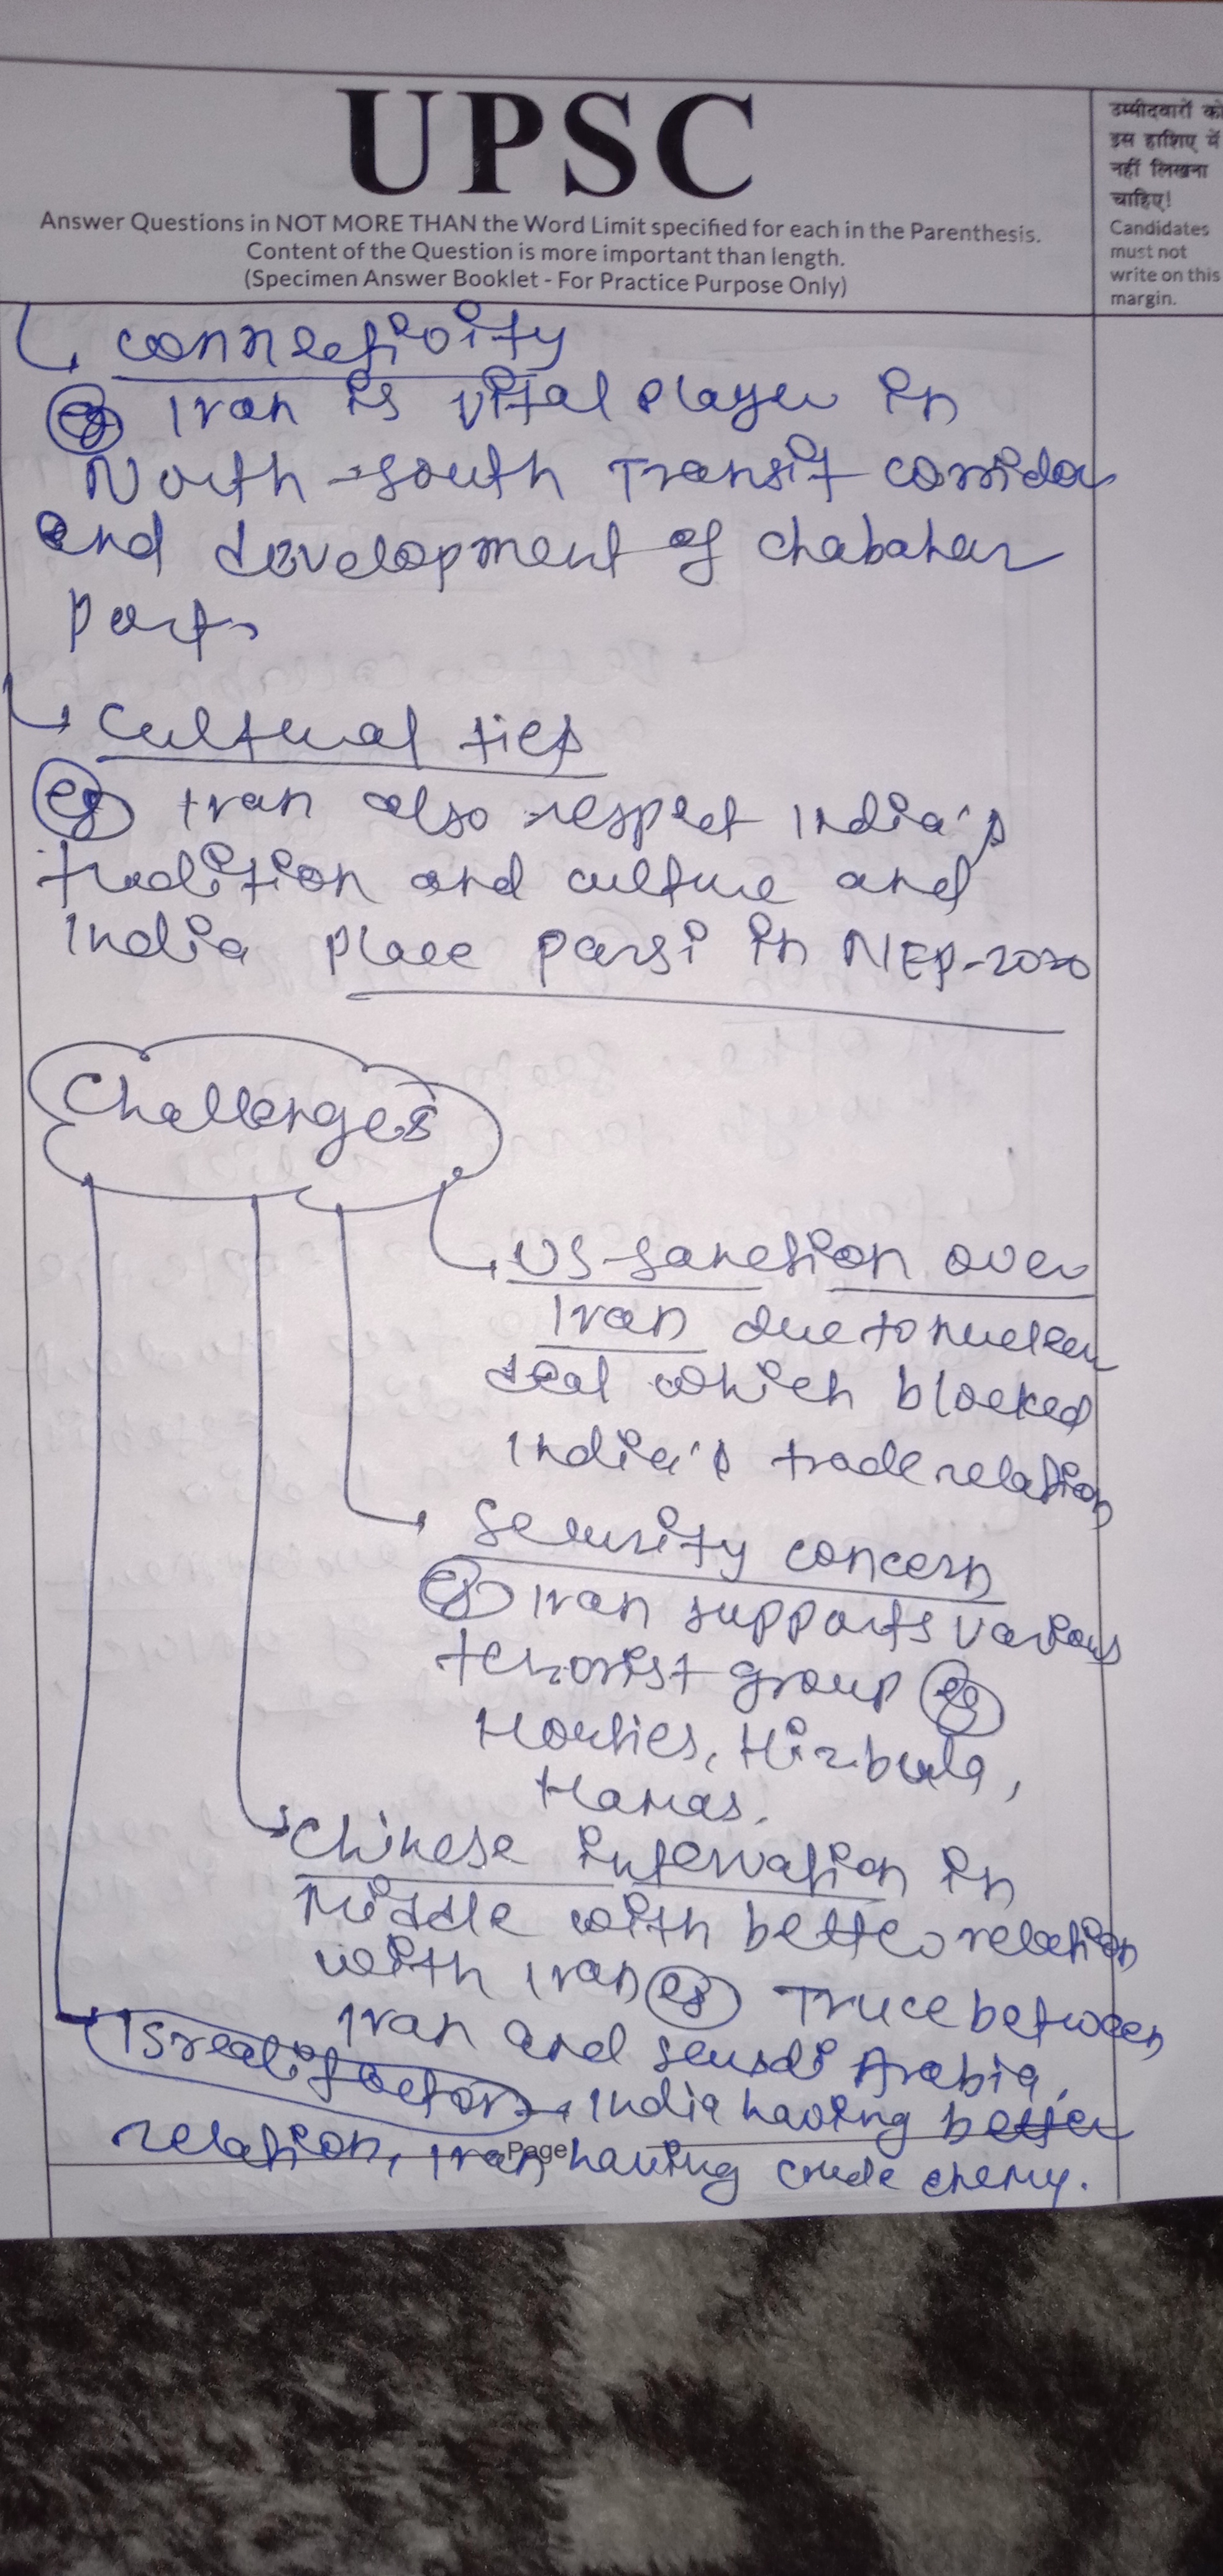 UPSC
Answer Questions in NOT MORE THAN the Word Limit specified for each in the Parenthesis.
Content of the Question is more important than length.
(Specimen Answer Booklet - For Practice Purpose Only)
उम्मीदवारों को
इस हाशिए में
नहीं लिखना
चाहिए!
Candidates
must not
write on this
margin.
connectivity
eg Iran is vital player in
North-south Transit corridor
and development of chabahar
port
cultural ties
eg Iran also respect India's
tradition and culture and
India place parsi in NEP-2020
Challenges
US-sanction over
Iran due to nuclear
deal which blocked
India's trade relation
Security concern
eg Iran supports various
terrorist group eg
Houties, Hizbula,
Hamas.
Chinese intervation in
Middle with better relation
with Iran eg Truce between
Iran and Saudi Arabia,
Isreal factor India having better
relation, Iran having crude enemy.
Page